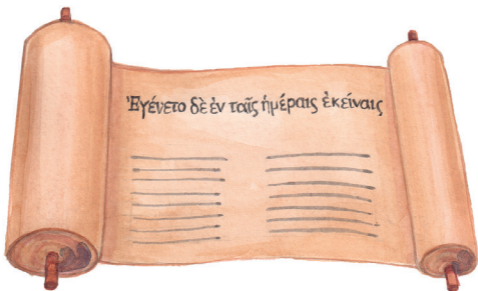 Ἐγένετο δὲ ἐν ταῖς ἡμέραις ἐκείναις